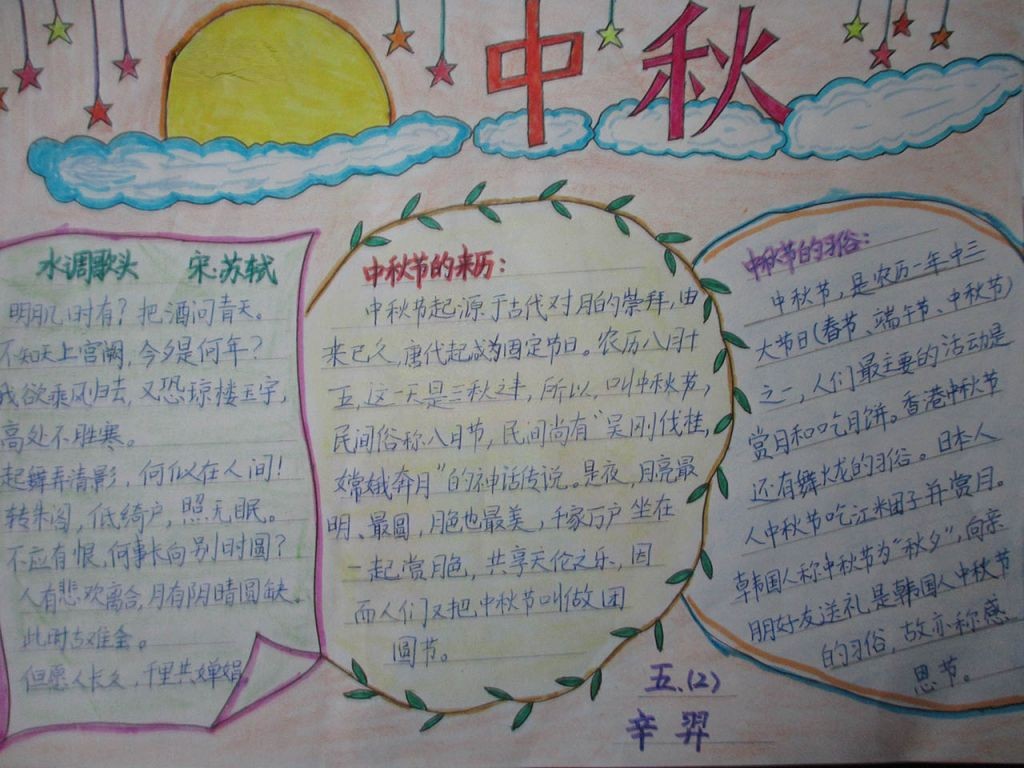 中秋
水调歌头 宋:苏轼
明月几时有？把酒问青天。
不知天上宫阙，今夕是何年？
我欲乘风归去，又恐琼楼玉宇，
高处不胜寒。
起舞弄清影，何似在人间！
转朱阁，低绮户，照无眠。
不应有恨，何事长向别时圆？
人有悲欢离合，月有阴晴圆缺。
此时古难全。
但愿人长久，千里共婵娟
中秋节的来历：
中秋节起源于古代对月的崇拜，由
来已久，唐代起成为固定节日。农历八月十
五，这一天是三秋之半，所以，叫中秋节，
民间俗称八月节，民间尚有“吴刚伐桂，
嫦娥奔月”的神话传说。是夜，月亮最
明、最圆，月色也最美，千家万户坐在
一起赏月色，共享天伦之乐，因
而人们又把中秋节叫做团
圆节。
中秋节的习俗：
中秋节，是农历一年中三
大节日(春节、端午节、中秋节)
之一，人们最主要的活动是
赏月和吃月饼。香港中秋节
还有舞火龙的习俗。日本人
人中秋节吃江米团子并赏月。
韩国人称中秋节为“秋夕”，向亲
朋好友送礼是韩国人中秋节
的习俗，故亦称感
恩节。
五.(2)
辛羿